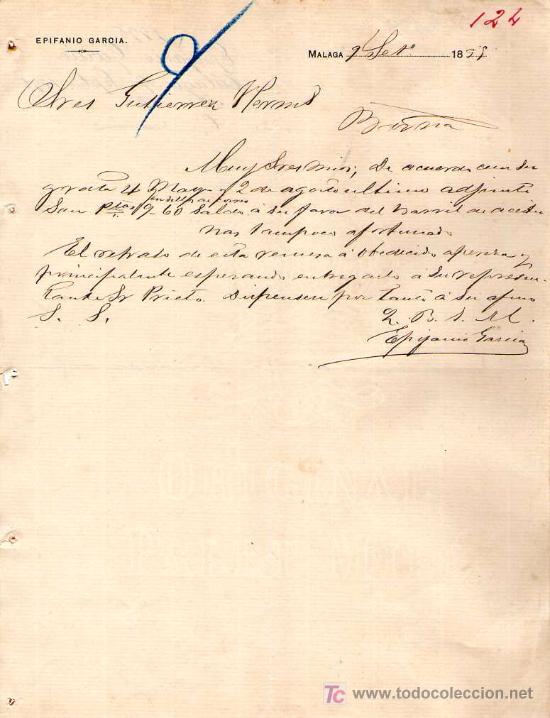 124
EPIFANIO GARCIA.
MALAGA 9 Set.e 1899
Sres Gutierrez Herms
Muy Sres mios; De acuerdo con su
grata 4 Mayo y 2 de agosto ultimo adjunto
Son Ptas 9 60 Saldo á su favor del barril de
mas tampoco afortunado
El retraso de esta remesa á obedecido
principalmente esperando entregarlo á su represen
tante Sr Prieto. Dispensen por tanto á su afmo
S. S.
Q. B. S. M.
Epifanio Garcia
TC
www.todocoleccion.net